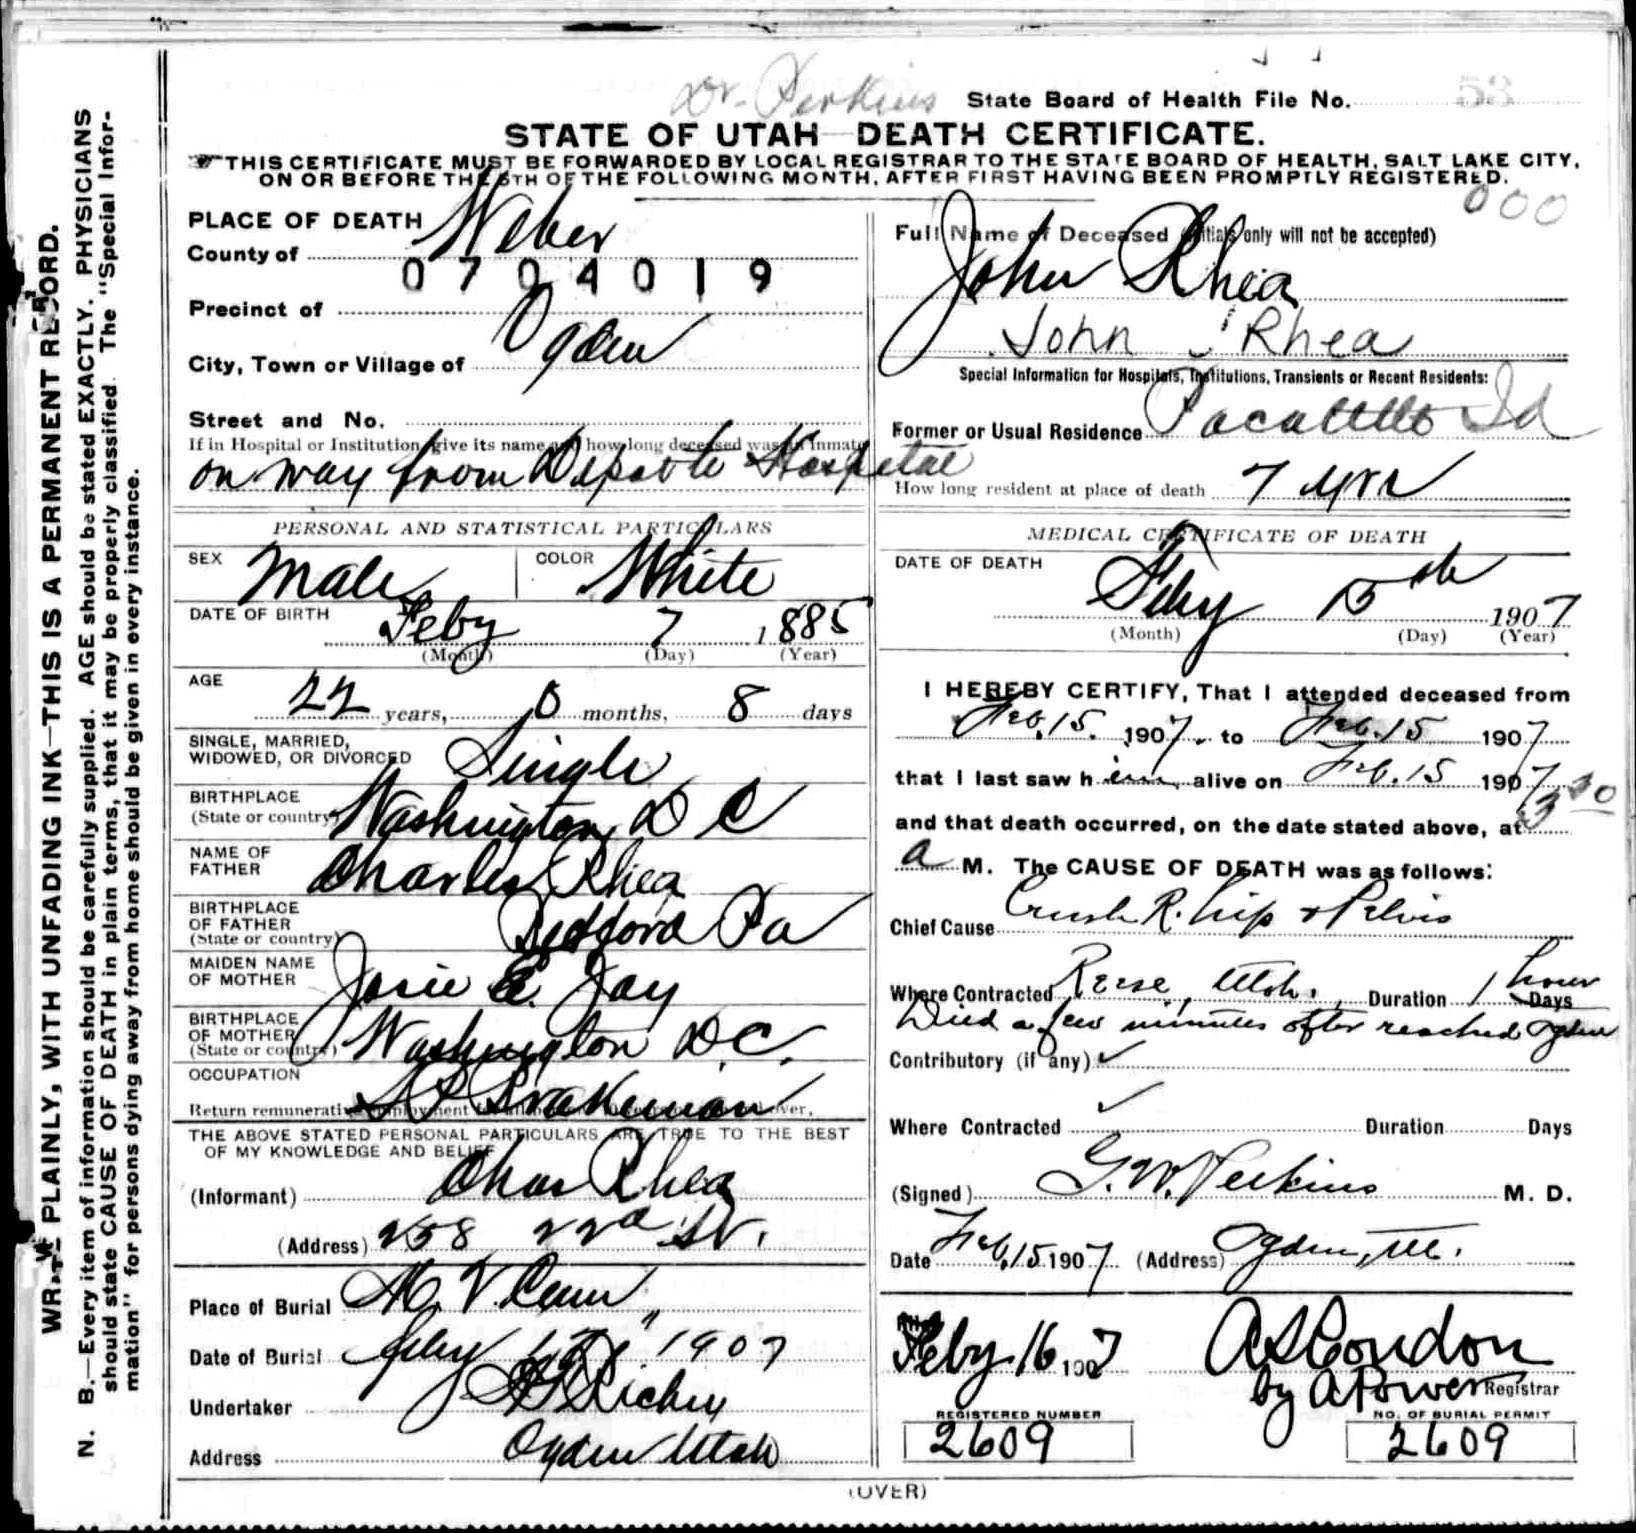 Dr. Perkins
State Board of Health File No. 53
STATE OF UTAH—DEATH CERTIFICATE.
THIS CERTIFICATE MUST BE FORWARDED BY LOCAL REGISTRAR TO THE STATE BOARD OF HEALTH, SALT LAKE CITY,
ON OR BEFORE THE 5TH OF THE FOLLOWING MONTH, AFTER FIRST HAVING BEEN PROMPTLY REGISTERED.
000
WRITE PLAINLY, WITH UNFADING INK—THIS IS A PERMANENT RECORD.
N. B.—Every item of information should be carefully supplied. AGE should be stated EXACTLY. PHYSICIANS
should state CAUSE OF DEATH in plain terms, that it may be properly classified. The "Special Infor-
mation" for persons dying away from home should be given in every instance.
PLACE OF DEATH
County of Weber
0704019
Precinct of
City, Town or Village of Ogden
Street and No.
If in Hospital or Institution give its name and how long deceased was an inmate
on way from Depot to Hospital
PERSONAL AND STATISTICAL PARTICULARS
SEX Male COLOR White
DATE OF BIRTH Feby 7, 1885
(Month) (Day) (Year)
AGE
22 years, 0 months, 8 days
SINGLE, MARRIED,
WIDOWED, OR DIVORCED Single
BIRTHPLACE
(State or country) Washington D C
NAME OF
FATHER Charles Rhea
BIRTHPLACE
OF FATHER
(State or country) Bedford Pa
MAIDEN NAME
OF MOTHER Josie E. Jay
BIRTHPLACE
OF MOTHER
(State or country) Washington D.C.
OCCUPATION
S P Brakeman
THE ABOVE STATED PERSONAL PARTICULARS ARE TRUE TO THE BEST
OF MY KNOWLEDGE AND BELIEF
(Informant) Chas Rhea
(Address) 258 22nd St.
Place of Burial Mt. V. Cem
Date of Burial Feby 1907
Undertaker Richey
Address Ogden Utah
Full Name of Deceased (Initials only will not be accepted)
John Rhea
John Rhea
Special Information for Hospitals, Institutions, Transients or Recent Residents:
Former or Usual Residence Pocatello Id
How long resident at place of death 7 yrs
MEDICAL CERTIFICATE OF DEATH
DATE OF DEATH
Feby 15th 1907
(Month) (Day) (Year)
I HEREBY CERTIFY, That I attended deceased from
Feb. 15. 1907. to Feb. 15 1907
that I last saw him alive on Feb. 15 1907
and that death occurred, on the date stated above, at 3 30
a M. The CAUSE OF DEATH was as follows:
Chief Cause Crush R. hip & Pelvis
Where Contracted Reese, Utah. Duration 1 hour Days
Died a few minutes after reached Ogden
Contributory (if any)
Where Contracted Duration Days
(Signed) G. W. Perkins M. D.
Date Feb. 15 1907 (Address) Ogden, Ut.
Feby 16 1907 A S Condon
by A Power Registrar
REGISTERED NUMBER
2609
NO. OF BURIAL PERMIT
2609
(OVER)